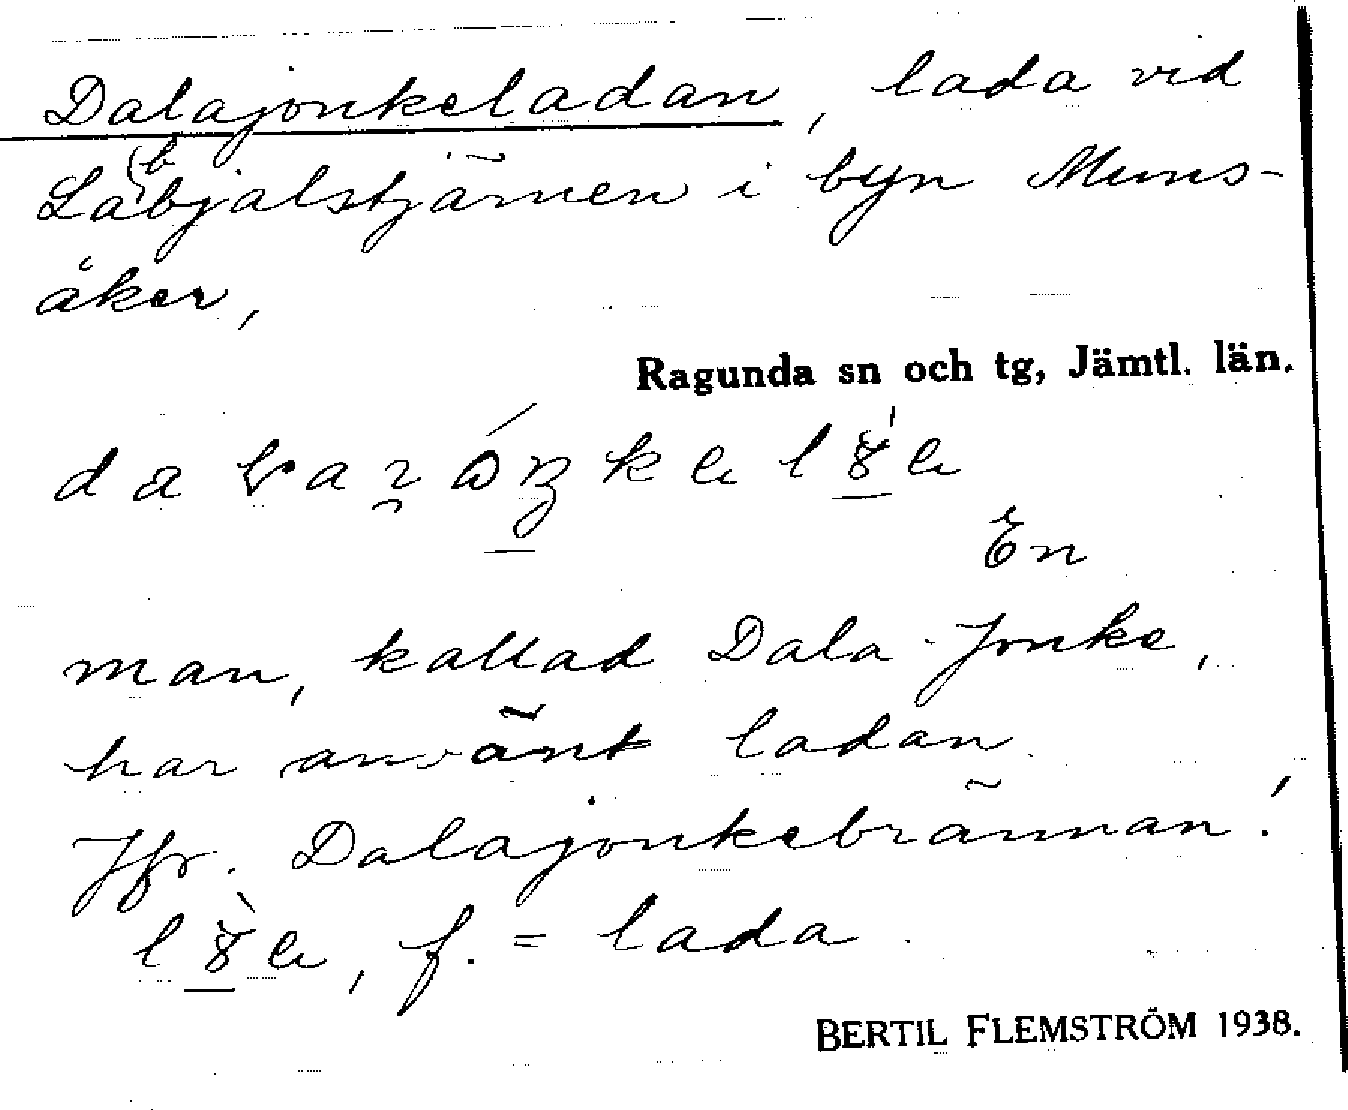 Dalajonkeladan, lada vid
Lab(b)jalstjärnen i byn Muns-
åker,
Ragunda sn och tg, Jämtl. län.
En
man, kallad Dala-Jonke,
har använt ladan.
Jfr. Dalajonkebrännan!
f. = lada
BERTIL FLEMSTRÖM 1938.